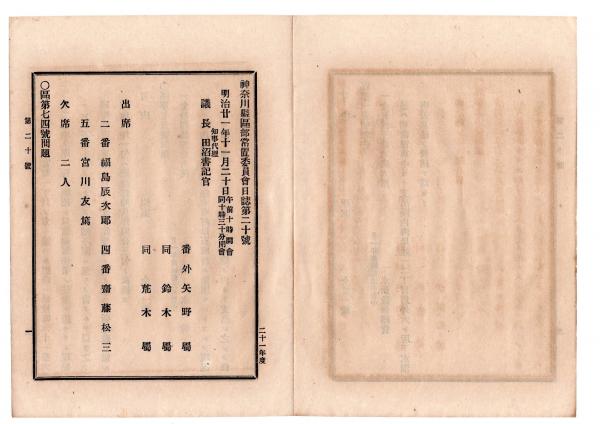 二十一年度
神奈川縣區部常置委員會日誌第二十號
明治廿一年十一月二十日午前十時開會
同十時三十分閉會
知事代理
議長 田沼書記官
番外 矢野屬
同 鈴木屬
同 荒木屬
出席
二番 福島辰次郎 四番 齋藤松三
五番 宮川友篤
欠席 二人
〇區第七四號問題
第二十號
一